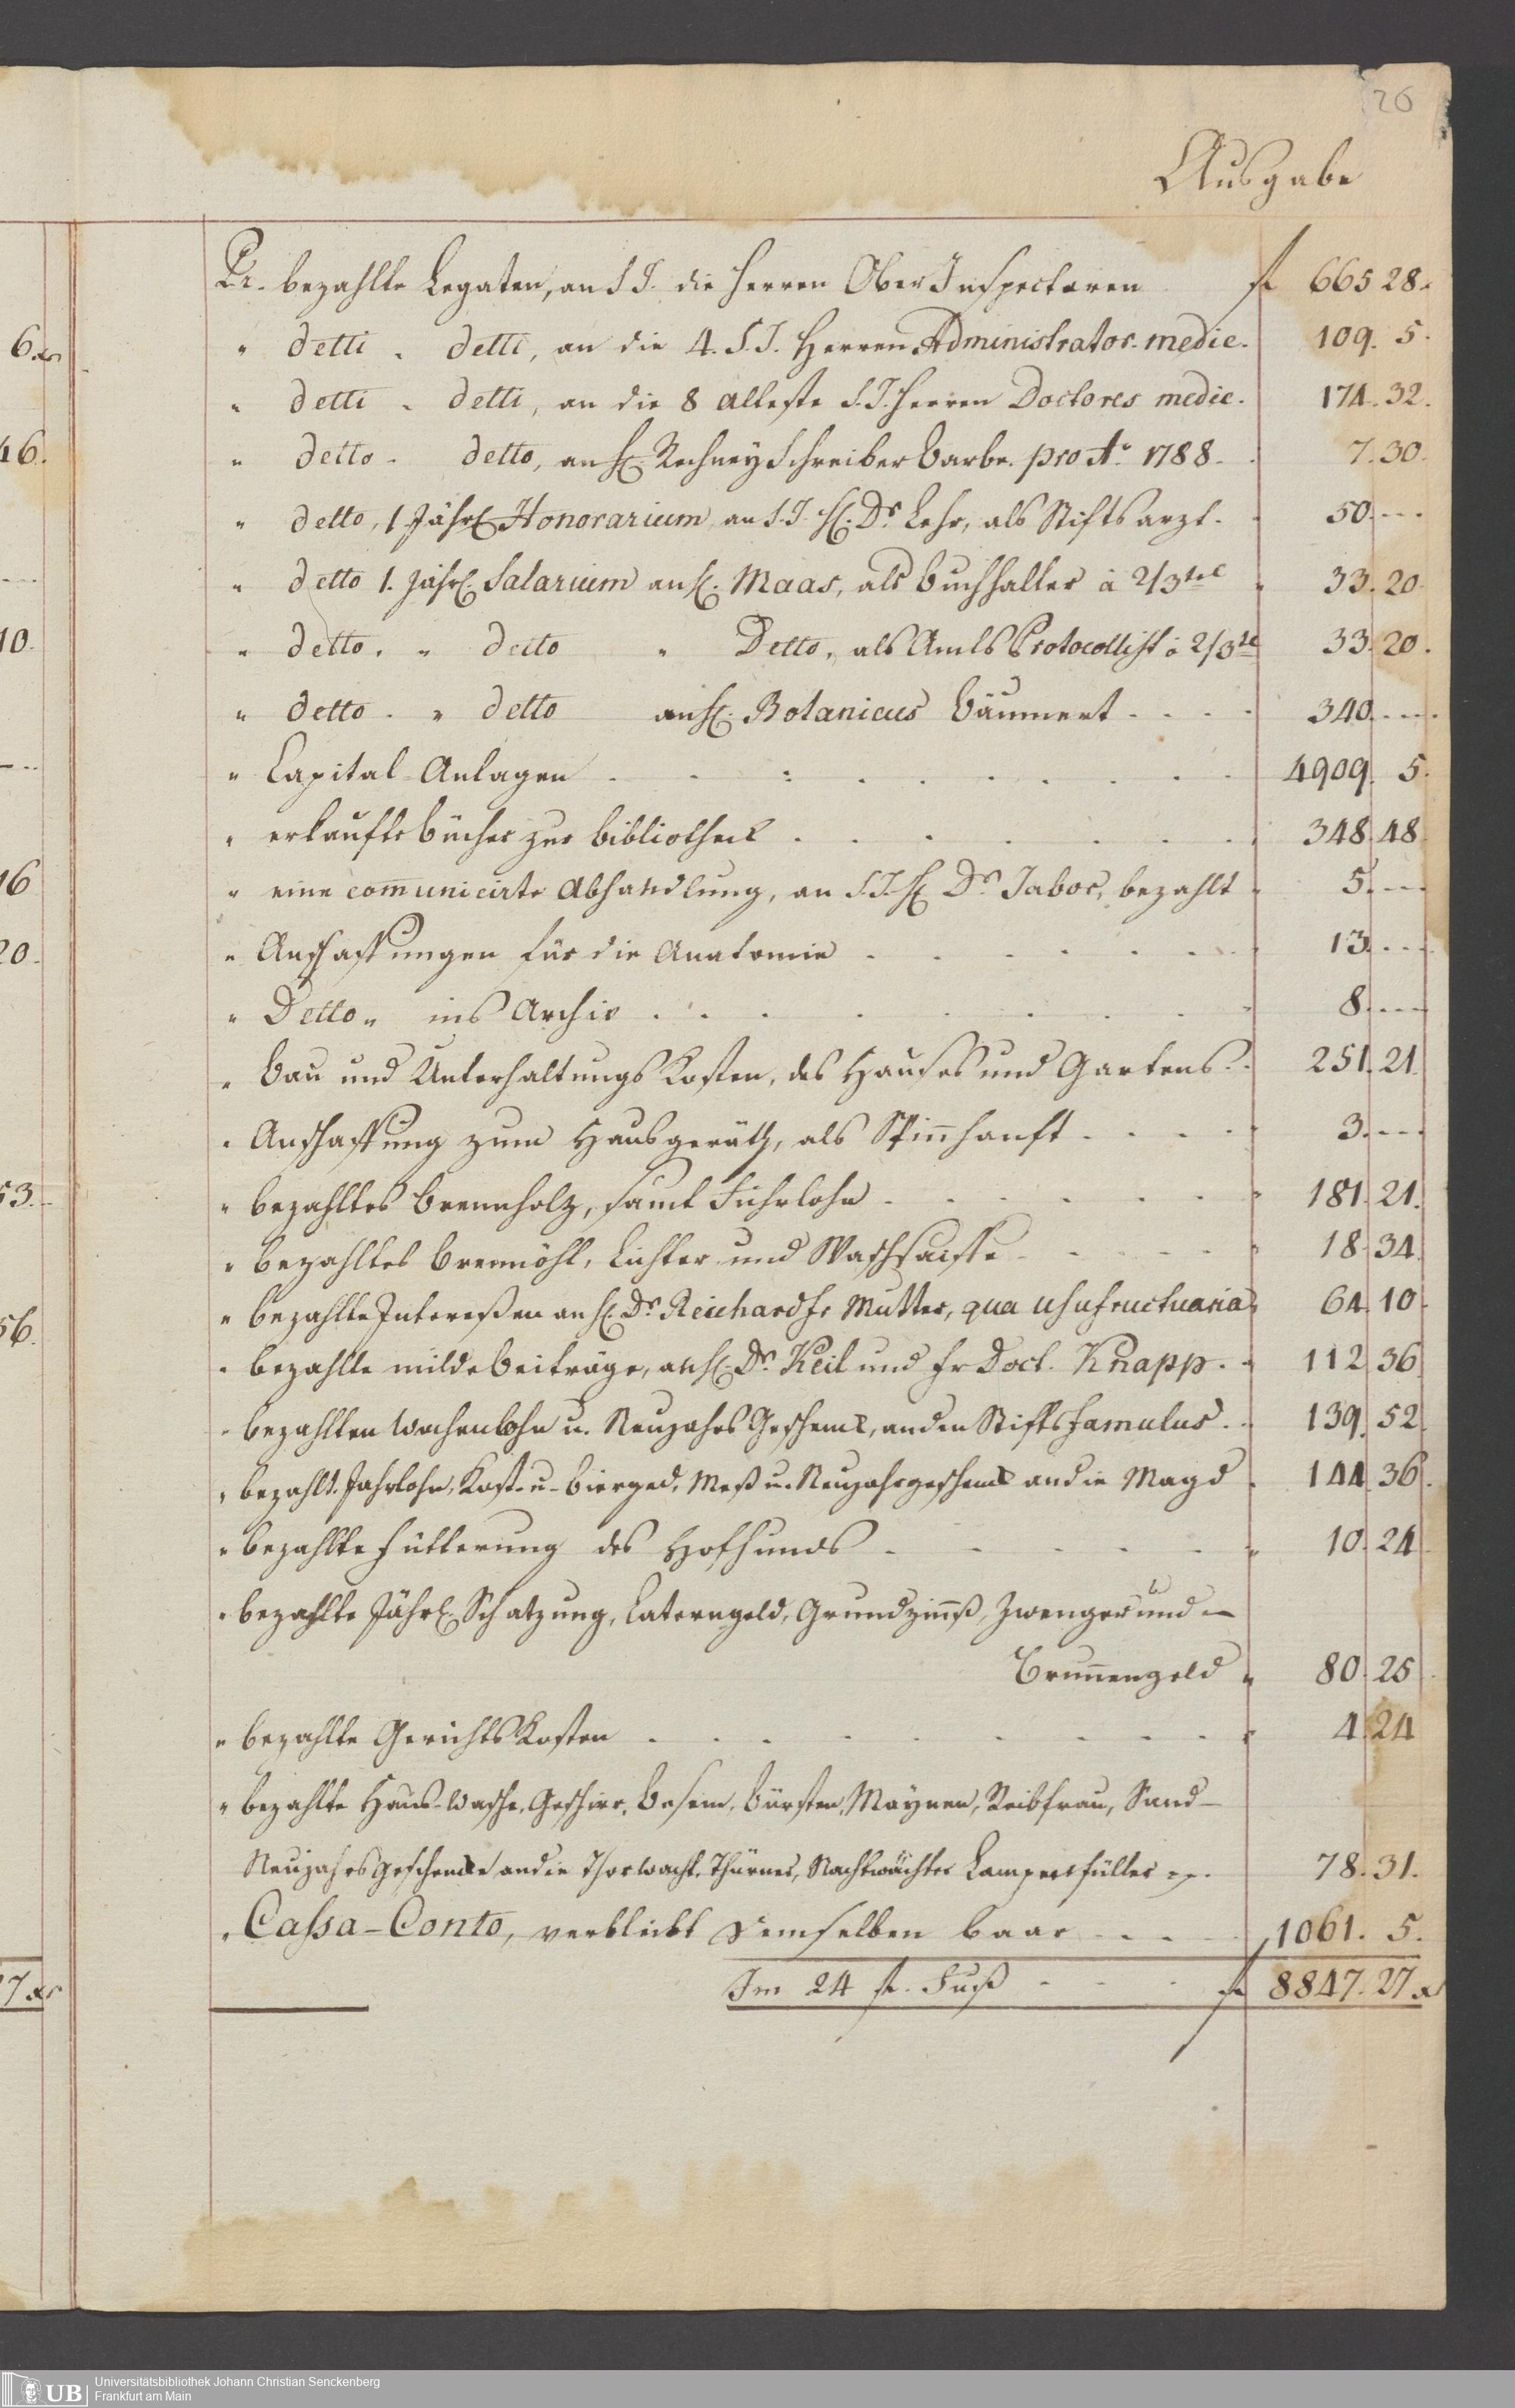 26
Ausgabe
Pr. bezahlte Legaten, an S.T. die Herren Ober Inspectoren f 665 28.
" detti " detti, an die 4. S.T. Herren Administrator. medic. 109. 5.
" detti " detti, an die 8 älteste S.T. Herren Doctores medic. 174. 32.
" detto " detto, an H. Rechney Schreiber Barbe. pro Ao. 1788. 7. 30.
" detto, 1 Jährl. Honorarium an S.T. H. Dr. Lehr, als Stiftsarzt. 50. ---
" detto 1. Jährl. Salarium an H. Maas, als Buchhalter à 2/3tel 33. 20.
" detto. " detto " Detto, als Amts Protocollist à 2/3tel 33. 20.
" detto. " detto an H. Botanicus Bäumert 340. ---
" Capital-Anlagen 4909. 5.
" erkaufte Bücher zur Bibliotheck 348. 48
" eine communicirte Abhandlung, an S.T. H. Dr. Jabor, bezahlt 5. ---
" Anschaffungen für die Anatomie 13. ---
" Detto " ins Archiv 8. ---
" Bau und Unterhaltungs Kosten, des Hauses und Gartens 251. 21.
" Anschaffung zum Hausgeräth, als Spinnhanft 3. ---
" bezahltes Brennholz, samt Fuhrlohn 181. 21.
" bezahltes Brennöhl, Lichter und Waschsaiffe 18. 34.
" bezahlte Interessen an H. Dr. Reichards Mutter, qua usufructuaria 64. 10
" bezahlte milde Beiträge, an H. Dr. Keil und Fr Doct. Knapp. 112 36
" bezahlten Wochenlohn u. Neujahrs Geschenk, an den Stifts Famulus. 139. 52
" bezahlt. Jahrlohn, Kost- u. Biergeld, Mess u. Neujahrgeschenk an die Magd 144 36.
" bezahlte Fütterung des Hofhunds 10. 24
" bezahlte Jährl. Schatzung, Laterngeld, Grundzinnß, Zwenger und
Brunnengeld 80. 25
" bezahlte Gerichts Kosten 4. 24
" bezahlte Haus-Wasche, Geschirr, Besem, Bürsten, Mäynen, Reibfrau, Sand-
Neujahrs Geschenke an die Thorwacht, Thürner, Nachtwächter Lampenfüller 78. 31.
" Cassa-Conto, verbleibt demselben baar 1061. 5.
Im 24 f. Fuß f 8847. 27 xr
6. xr
46.
10.
16
20.
53.
56.
27 xr
UB Universitätsbibliothek Johann Christian Senckenberg
Frankfurt am Main